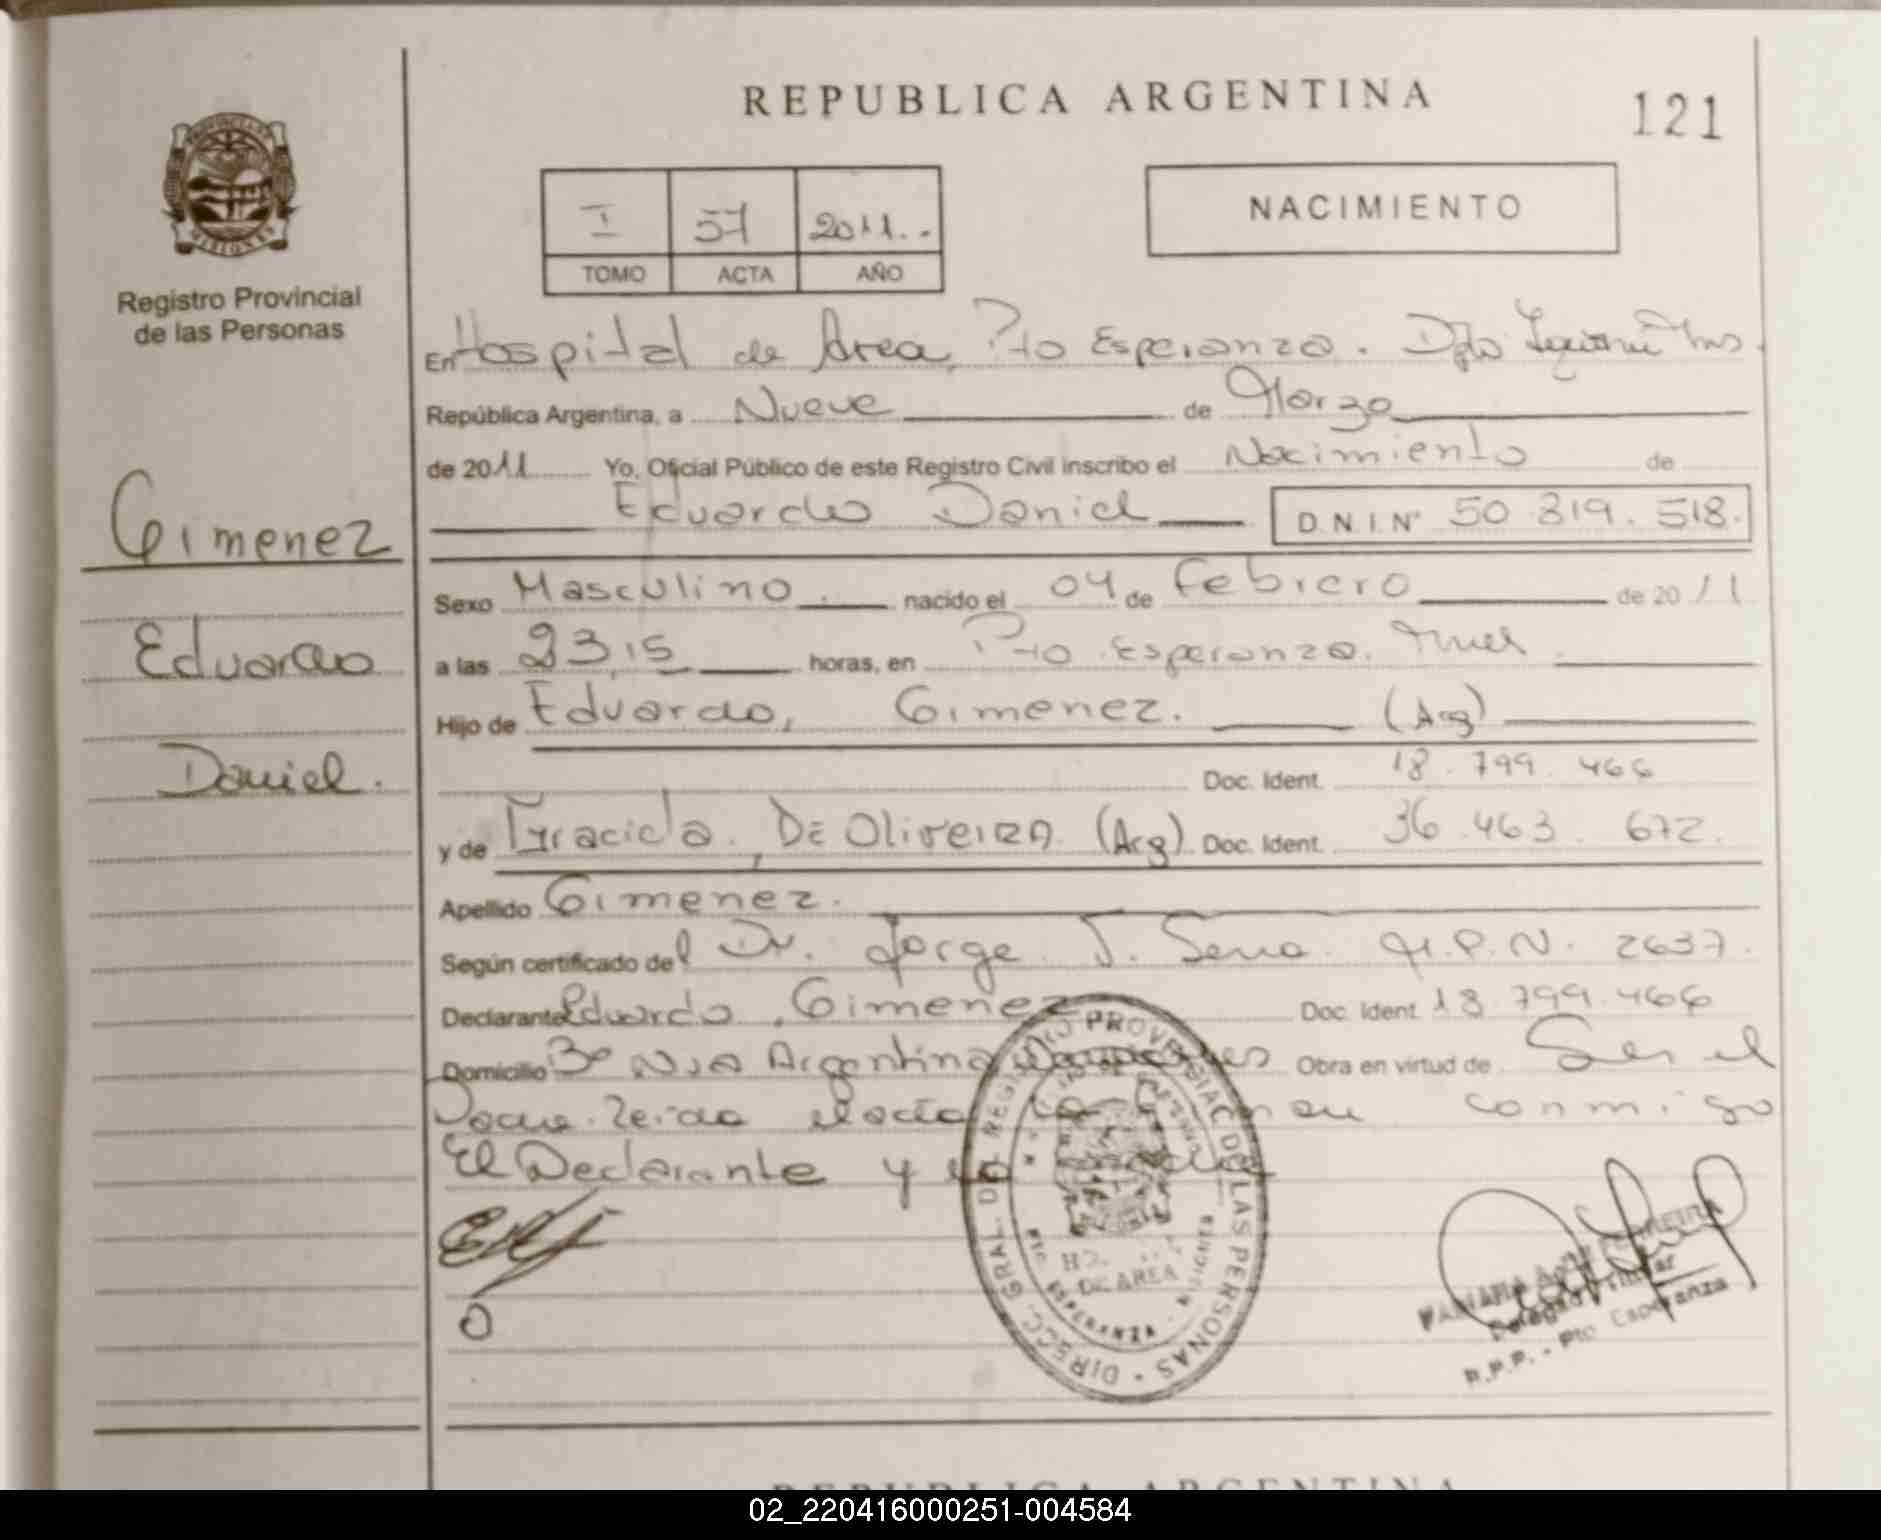 REPUBLICA ARGENTINA
121
PROVINCIA DE MISIONES
Registro Provincial
de las Personas
I 57 2011..
TOMO ACTA AÑO
NACIMIENTO
En Hospital de Area, Pto Esperanza. Dpto Iguazú Mnes.
República Argentina, a Nueve de Marzo
de 2011 Yo, Oficial Público de este Registro Civil inscribo el Nacimiento de
Eduardo Daniel D.N.I.Nº 50 819.518.
Gimenez
Eduardo
Daniel.
Sexo Masculino. nacido el 04 de Febrero de 2011
a las 23,15 horas, en Pto Esperanza. Mnes
Hijo de Eduardo, Gimenez. (Arg)
Doc. Ident. 18.799.466
y de Graciela, De Oliveira (Arg) Doc. Ident. 36.463.672.
Apellido Gimenez.
Según certificado del Dr. Jorge J. M.P.N. 2637.
Declarante Eduardo, Gimenez Doc. Ident. 18.799.466
Domicilio Bº Nva Argentina Obra en virtud de Ser el
Padre. Leida el acta la firman conmigo
El Declarante y la
DIRECC. GRAL. DEL REGISTRO PROVINCIAL DE LAS PERSONAS
DE AREA
PTO. ESPERANZA - MISIONES
Delegada Titular
R.P.P. - Pto Esperanza
REPUBLICA ARGENTINA
02_220416000251-004584